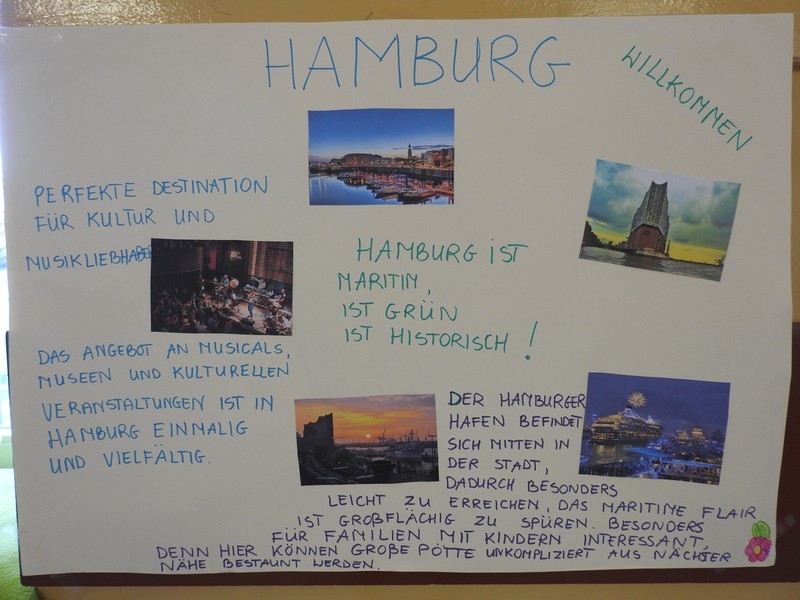 HAMBURG
WILLKOMMEN
PERFEKTE DESTINATION
FÜR KULTUR UND
MUSIKLIEBHABER
DAS ANGEBOT AN MUSICALS,
MUSEEN UND KULTURELLEN
VERANSTALTUNGEN IST IN
HAMBURG EINMALIG
UND VIELFÄLTIG.
HAMBURG IST
MARITIN,
IST GRÜN
IST HISTORISCH!
DER HAMBURGER
HAFEN BEFINDET
SICH MITTEN IN
DER STADT,
DADURCH BESONDERS
LEICHT ZU ERREICHEN, DAS MARITIME FLAIR
IST GROßFLÄCHIG ZU SPÜREN. BESONDERS
FÜR FAMILIEN MIT KINDERN INTERESSANT,
DENN HIER KÖNNEN GROßE PÖTTE UNKOMPLIZIERT AUS NÄCHSTER
NÄHE BESTAUNT WERDEN.